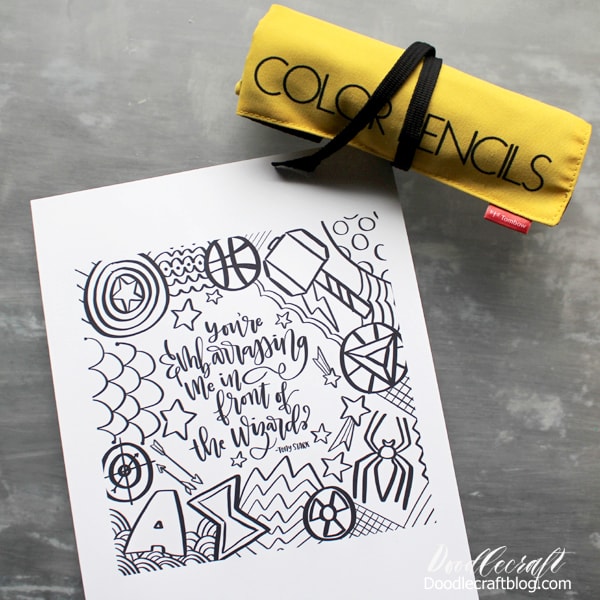 COLOR PENCILS
Tombow
You're
Embarrassing
Me in
front of
the Wizards
-Tony Stark
A
Doodlecraft
Doodlecraftblog.com